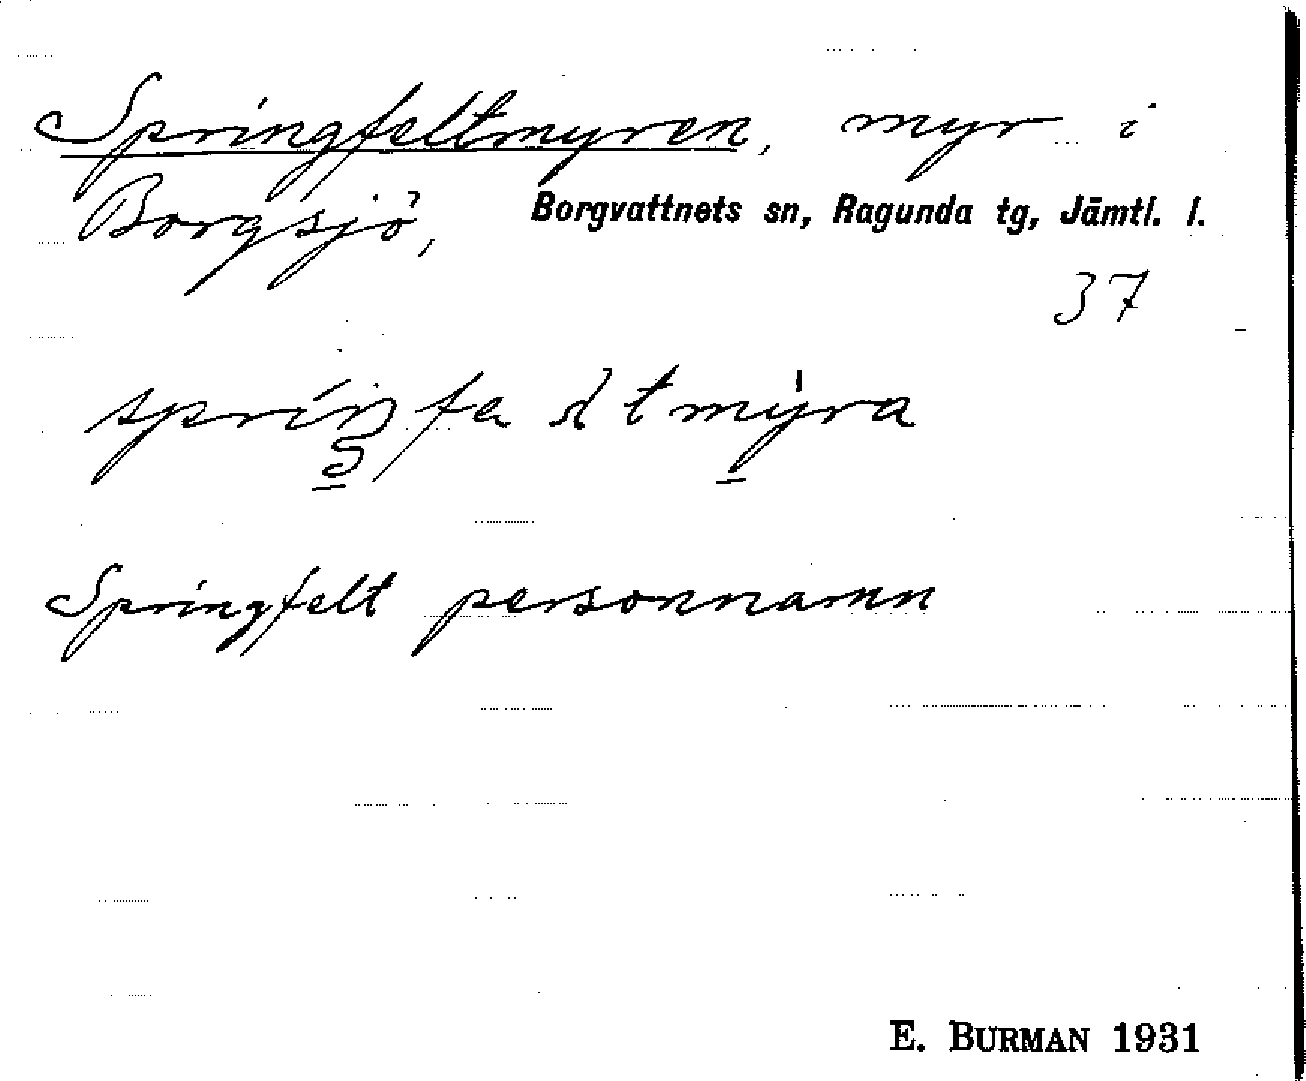 Springfeltmyren, myr i
Borgsjö, Borgvattnets sn, Ragunda tg, Jämtl. l.
37
Springfelt personnamn
E. BURMAN 1931